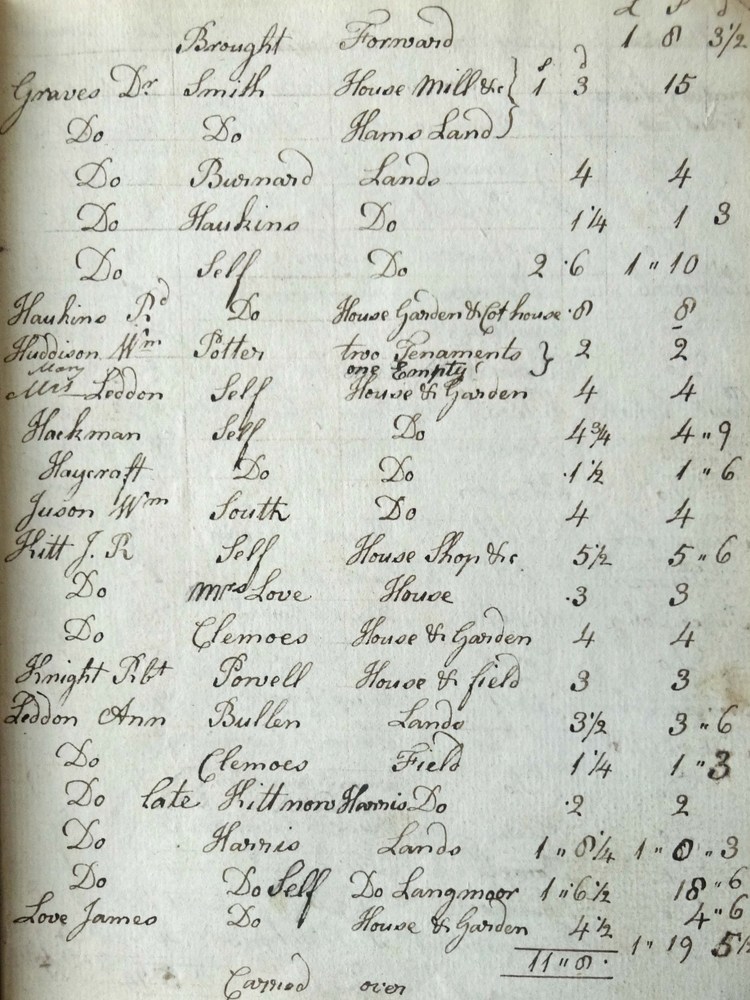 £ s d
Brought Forward 1 8 3½
s d
Graves Dr Smith House Mill &c } 1 3 15
Do Do Hams Land }
Do Burnard Lands 4 4
Do Haukins Do 1¼ 1 3
Do Self Do 2 6 1 " 10
Haukins Rd Do House Garden & Cot house 8 8
Huddison Wm Potter two Tenaments } 2 2
one Empty
Mary
Mrs Leddon Self House & Garden 4 4
Hackman Self Do 4¾ 4 " 9
Haycraft Do Do 1½ 1 " 6
Juson Wm South Do 4 4
Kitt J. R Self House Shop &c 5½ 5 " 6
Do Mrs Love House 3 3
Do Clemoes House & Garden 4 4
Knight Rbt Powell House & field 3 3
Leddon Ann Bullen Lands 3½ 3 " 6
Do Clemoes Field 1¼ 1 " 3
Do late Kitt now Harris Do 2 2
Do Harris Lands 1 " 8¼ 1 " 0 " 3
Do Do Self Do Langmoor 1 " 6½ 18 " 6
Love James Do House & Garden 4½ 4 " 6
11 " 8 1 " 19 5½
Carried over